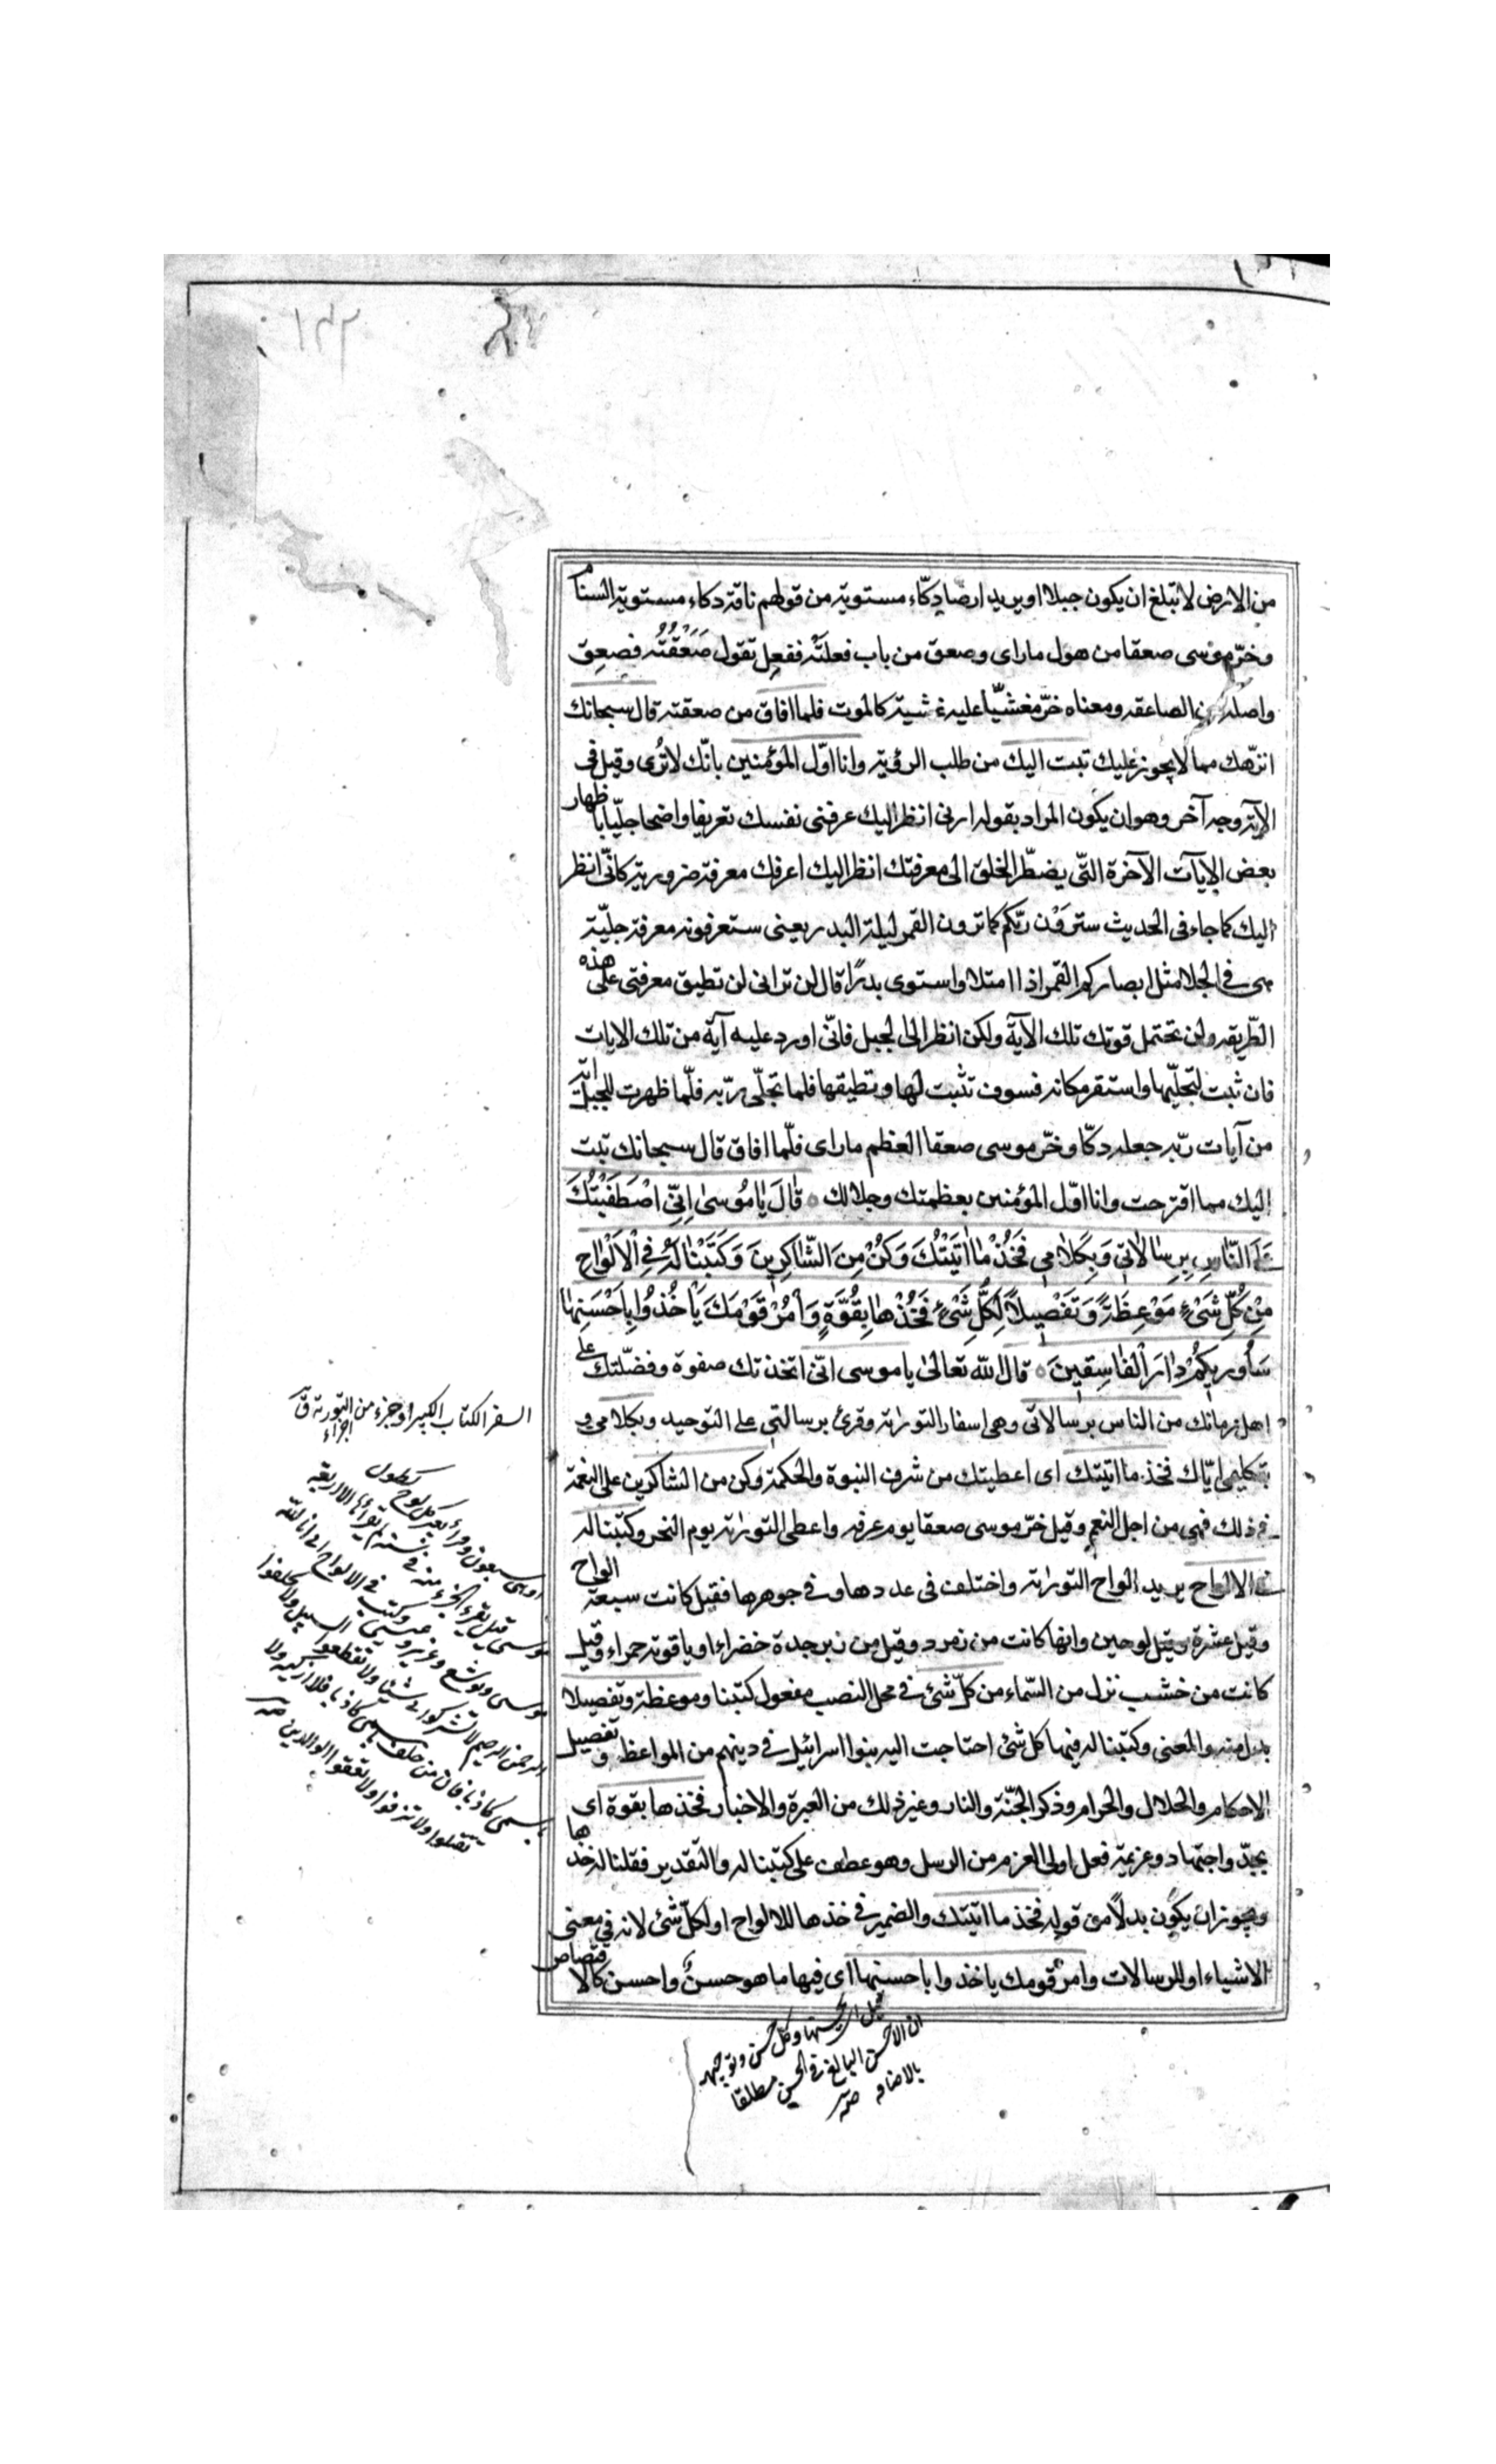 ١٤٢
من الارض لا تبلغ ان يكون جبلا او يريد ارضا دكّاء مستوية من قولهم ناقة دكاء مستوية السنام
وخرّ موسى صعقا من هول ما راى وصعق من باب فعلته ففعل تقول صَعَقْتُه فصعِق
واصله من الصاعقه ومعناه خرّ مغشيّا عليه غشية كالموت فلما افاق من صعقته قال سبحانك
انزهك مما لا يجوز عليك تبت اليك من طلب الرؤية وانا اوّل المؤمنين بانّك لا تُرى وقيل فى
الآية وجه آخر وهو ان يكون المراد بقوله ارنى انظر اليك عرفنى نفسك تعريفا واضحا جليّا باظهار
بعض الايات الآخرة التّى يضطّر الخلق الى معرفتك انظر اليك اعرفك معرفة ضرورية كانّى انظر
اليك كما جاء فى الحديث سترَوْن ربّكم كما ترون القمر ليلة البدر يعنى ستعرفونه معرفة جليّة
هى فى الجلا مثل ابصاركم القمر اذا امتلا واستوى بدرًا قال لن ترانى لن تطيق معرفتى على هذه
الطّريقه ولن تحتمل قوتك تلك الآية ولكن انظر الى الجبل فانّى اورد عليه آية من تلك الايات
فان ثبت لتجلّيها واستقر مكانه فسوف تثبت لها وتطيقها فلما تجلّى ربّه فلمّا ظهرت للجبل اية
من آيات ربّه جعله دكّا وخرّ موسى صعقا لعظم ما راى فلمّا افاق قال سبحانك تبت
اليك مما اقترحت وانا اوّل المؤمنين بعظمتك وجلالك ٥ قٰالَ يٰا مُوسىٰ اِنّىِ اصْطَفَيْتُكَ
عَلَى النّٰاسِ بِرِسٰالاٰتىِ وَبِكَلاٰمىِ فَخُذْ مٰا اٰتَيْتُكَ وَكُنْ مِنَ الشّٰاكِرِينَ وَكَتَبْنٰا لَهُ فِى الْاَلْوٰاحِ
مِنْ كُلِّ شَىْءٍ مَوْعِظَةً وَتَفْصِيلاً لِكُلِّ شَىْءٍ فَخُذْهٰا بِقُوَّةٍ وَأْمُرْ قَوْمَكَ يَأْخُذُوا بِاَحْسَنِهٰا
سَاُورِيكُمْ دٰارَ الْفٰاسِقِينَ ٥ قال الله تعالى يا موسى انّى اتخذتك صفوة وفضّلتك على
اهل زمانك من الناس برسالاتى وهى اسفار التوراة وقرئ برسالتى على التوحيد وبكلامى و
بتكليمى ايّاك فخذ ما اتيتك اى اعطيتك من شرف النبوة والحكمة وكن من الشاكرين على النعمة
فى ذلك فهى من اجل النعم وقيل خرّ موسى صعقا يوم عرفه واعطى التوراة يوم النحر وكتبنا له
فى الالواح يريد الواح التوراة واختلف فى عددها وفى جوهرها فقيل كانت سبعة الواح
وقيل عشرة وقيل لوحين وانها كانت من زمرد وقيل من زبرجدة خضراء او ياقوتة حمراء وقيل
كانت من خشب نزل من السّماء من كلّ شئ فى محل النصب مفعول كتبنا وموعظة وتفصيلا
بدل منه والمعنى وكتبنا له فيها كل شئ احتاجت اليه بنوا اسرائيل فى دينهم من المواعظ و تفصيل
الاحكام والحلال والحرام وذكر الجنّة والنار وغير ذلك من العبرة والاخبار فخذها بقوة اى
بجدّ واجتهاد وعزيمة فعل اولى العزم من الرسل وهو عطف على كتبنا له والتقدير فقلنا له خذها
ويجوز ان يكون بدلاً من قوله فخذ ما اتيتك والضمير فى خذها للالواح او لكلّ شئ لانه فى معنى
الاشياء او للرسالات وامر قومك ياخذوا باحسنها اى فيها ما هو حسنٌ واحسن كالاقتصاص
السفر الكتاب الكبير او جزء من التورية ق
اجزاء
موسى ويوشع وعزير وعيسى وكتب فى الالواح انى انا الله
الرحمن الرحيم لا تشركوا بى شيئا ولا تقطعوا السبيل ولا تحلفوا
باسمى كاذبا فان من حلف باسمى كاذبا فلا ازكيه ولا
تقتلوا ولا تزنوا ولا تعقوا الوالدين
ان الاحسن البالغ فى الحسن مطلقا
بالاضافه